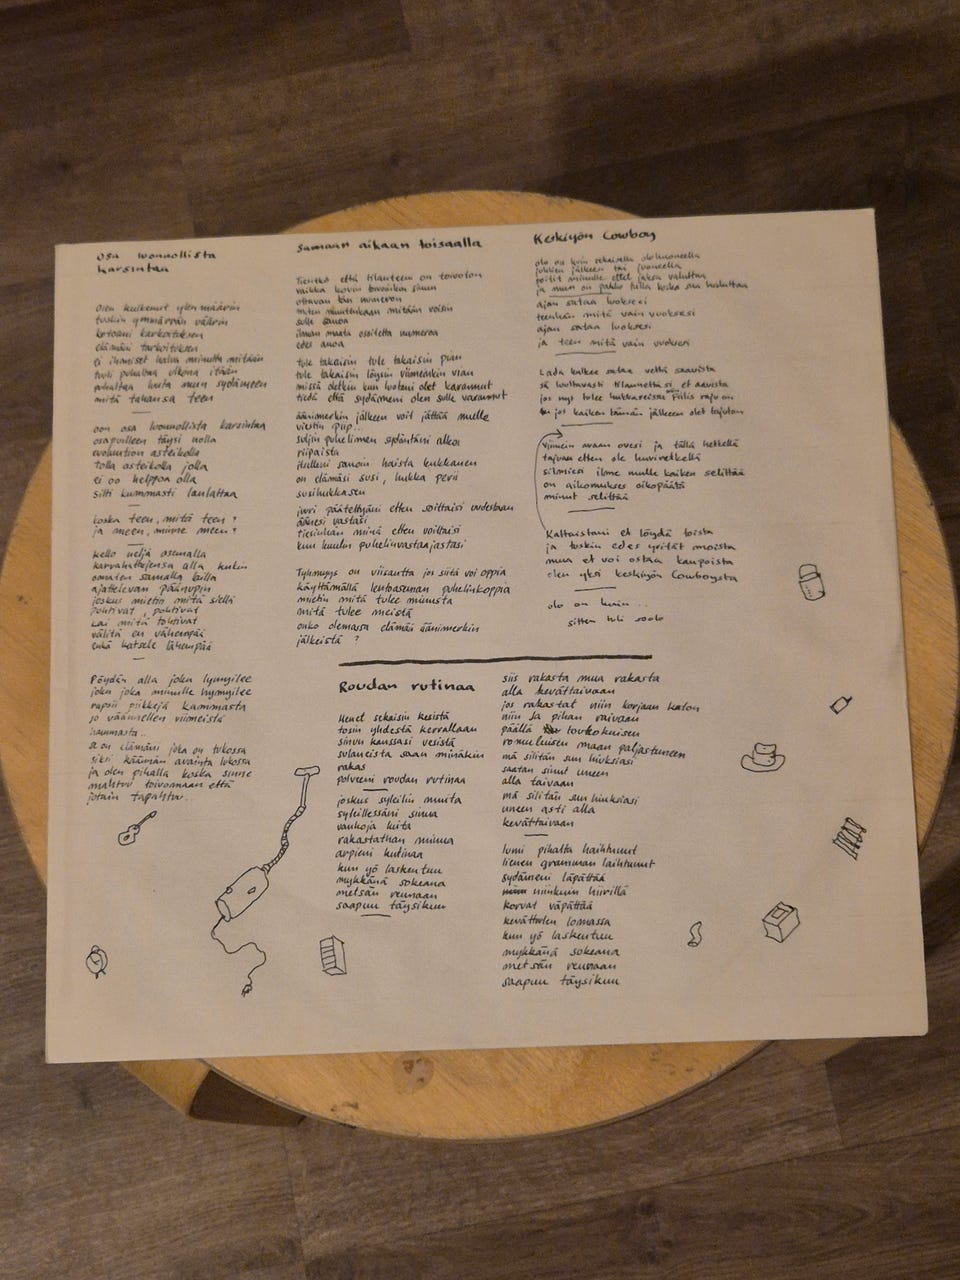 osa luonnollista
karsintaa
Olen kulkenut ylen määrin
tuskin ymmärrän väärin
kotoani karkoituksen
elämäni tarkoituksen
ei ihmiset halua minulta mitään
tuuli puhaltaa ulkona itään
puhaltaa lasta mun sydämeen
mitä tahansa teen
oon osa luonnollista karsintaa
osapuilleen täysi nolla
evoluution asteikolla
tolla asteikolla jolla
ei oo helppoa olla
silti kummasti laulattaa
koska teen, mitä teen?
ja meen, minne meen?
kello neljä asemalla
karvahattujensa alla kukin
omaten samalla lailla
ajatelevan päänupin
joskus mietin mitä siellä
pohtivat, pohtivat
kai mitä tohtivat
väliiä en vähempää
enkä katsele lähempää
Pöydän alla joku lymyilee
joku joka minulle hymyilee
rapsii piikkejä kammasta
jo väännellen viimeistä
hammasta..
se on elämäni joka on tukossa
siksi käännän avainta lukossa
ja olen pihalla koska sinne
mahtuu toivomaan että
jotain tapahtuu..
Samaan aikaan toisaalla
Tiesitkö että tilanteeni on toivoton
vaikka kovin toivoisin sinun
ottavan tän numeron
miten muutenkaan mitään voisin
sulle sanoa
ilman maata ositetta numeroa
edes anoa
tule takaisin tule takaisin pian
tule takaisin löysin viimeinkin vian
missä oletkin kun luotani olet karannut
tiedä että sydämeni olen sulle varannut
äänimerkin jälkeen voit jättää mulle
viestin piip...
suljin puhelimen sydäntäni alkoi
riipaista
itselleni sanoin haista kukkanen
on elämäsi susi, hukka peri
susihukkasen
juuri päätettyäni etten soittaisi uudestaan
äänesi vastasi
tiesinhän minä etten voittaisi
kun kuulin puhelinvastaajastasi
Tyhmyys on viisautta jos siitä voi oppia
käyttämällä lentoaseman puhelinkoppia
mietin mitä tulee minusta
mitä tulee meistä
onko olemassa elämää äänimerkin
jälkeistä ?
Keskiyön Cowboy
olo on kuin sekaisella olohuoneella
juhlien jälkeen tai juoneella
soitit minulle ettet jaksa valuttaa
ja mun on pakko tulla koska sua haluttaa
ajan sataa luoksesi
teenhän mitä vain vuoksesi
ajan sataa luoksesi
ja teen mitä vain vuoksesi
Lada kulkee sataa vettä saavista
sä luultavasti tilannetta si et aavista
jos nyt tulee hukkareissu niin fiilis raju on
tai jos kaiken tämän jälkeen olet tajuton
Viimein avaan ovesi ja tällä hetkellä
tajuan etten ole huviretkellä
silmiesi ilme mulle kaiken selittää
on aikomukses oikopäätä
minut selittää
Kaltaistani et löydä toista
ja tuskin edes yrität moista
mua et voi ostaa kaupoista
olen yksi keskiyön Cowboysta
olo on kuin..
sitten tuli soolo
Roudan rutinaa
Menet sekaisin kesistä
tosin yhdestä kerrallaan
sinun kanssasi vesistä
sulaneista saan minäkin
rakas
polveeni roudan rutinaa
joskus syleilin muita
syleillessäni sinua
vanhoja luita
rakastathan minua
arpieni kutinaa
kun yö laskeutuu
mykkänä sokeana
metsän reunaan
saapuu täysikuu
siis rakasta mua rakasta
alla kevättaivaan
jos rakastat niin korjaan katon
niin ja pihan raivaan
päällä toukokuisen
romuluisen maan paljastuneen
mä silitän sun hiuksiasi
saatan sinut uneen
alla taivaan
mä silitän sun hiuksiasi
uneen asti alla
kevättaivaan
lumi pihalta haihtunut
lienen gramman laihtunut
sydämeni läpättää
niinkuin hiirillä
korvat väpättää
kevättulen lomassa
kun yö laskeutuu
mykkänä sokeana
metsän reunaan
saapuu täysikuu